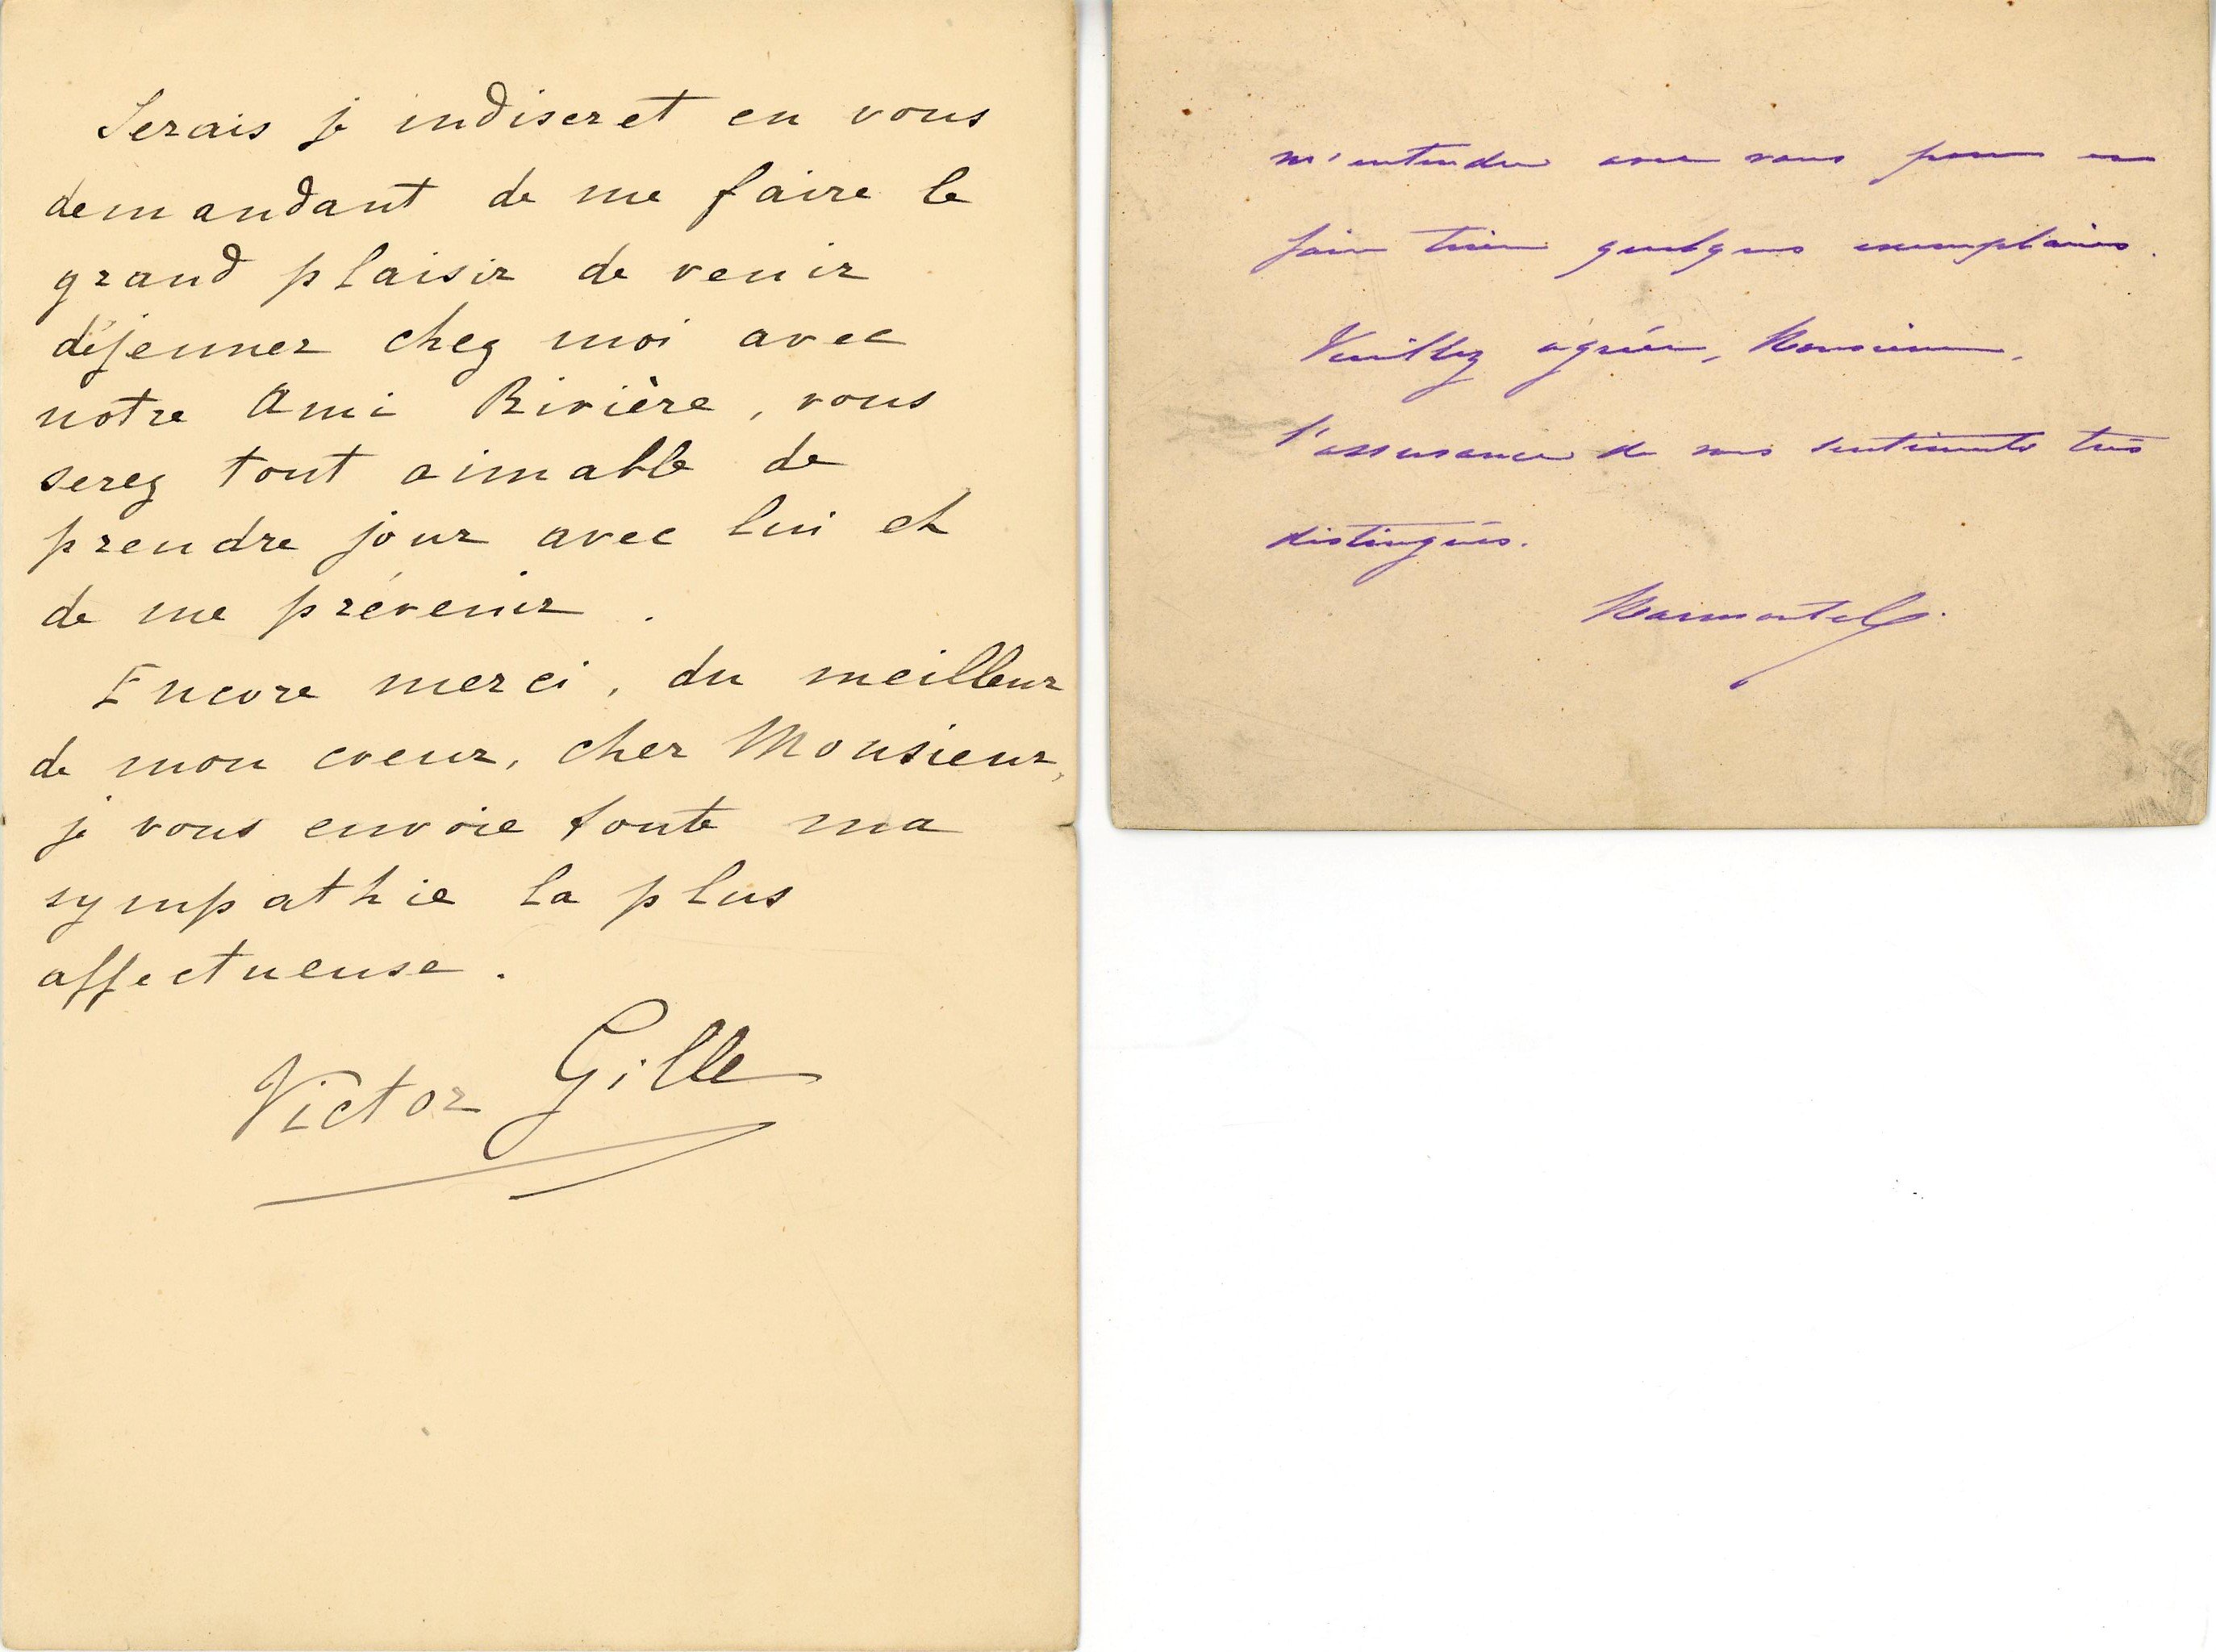 Serais je indiscret en vous
demandant de me faire le
grand plaisir de venir
déjeuner chez moi avec
notre Ami Rivière, vous
serez tout aimable de
prendre jour avec lui et
de me prévenir.
Encore merci, du meilleur
de mon coeur, cher Monsieur,
je vous envoie toute ma
sympathie la plus
affectueuse.
Victor Gille
m'entendre avec vous pour en
faire tirer quelques exemplaires.
Veuillez agréer, Monsieur,
l'assurance de mes sentiments très
distingués.
Marmontel